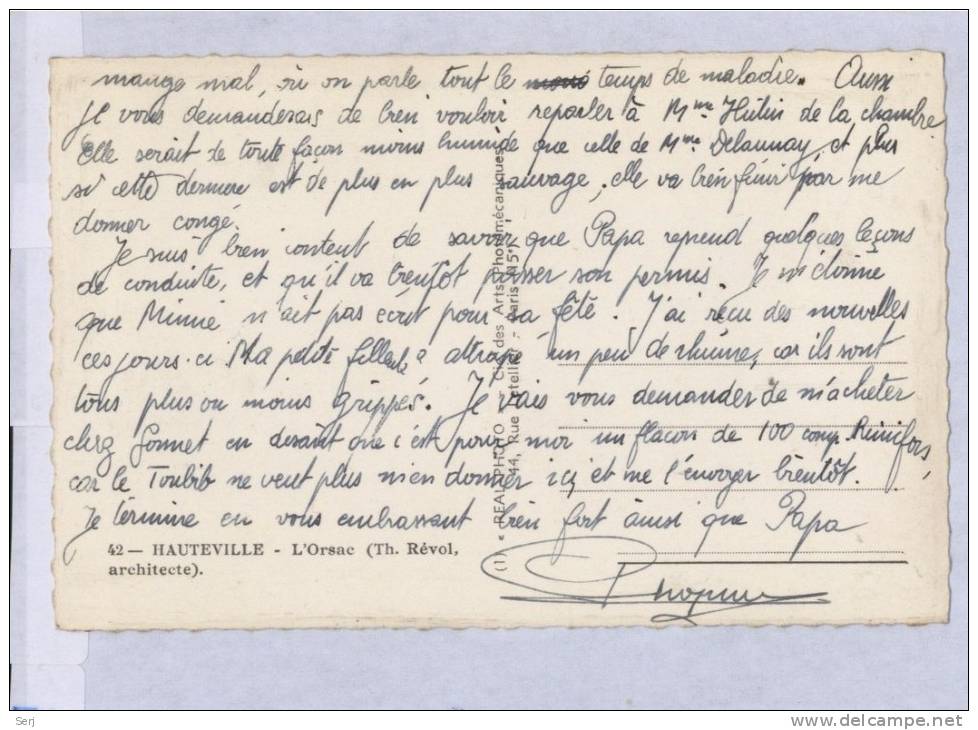 mange mal, où on parle tout le temps de maladie. Aussi
je vous demanderais de bien vouloir reparler à Mme Hulin de la chambre
Elle serait de toute façon moins humide que celle de Mme Delaunay, et puis
si cette dernière est de plus en plus sauvage, elle va bien finir par me
donner congé.
Je suis bien content de savoir que Papa reprend quelques leçons
de conduite, et qu'il va bientôt passer son permis. Je m'étonne
que Mimie n'ait pas écrit pour sa fête. J'ai reçu des nouvelles
ces jours-ci Ma petite filleule a attrapé un peu de rhume, car ils sont
tous plus ou moins grippés. Je vais vous demander de m'acheter
chez Gonnet en disant que c'est pour moi un flacon de 100 comp. Rimifon,
car le Toubib ne veut plus m'en donner ici, et me l'envoyer bientôt.
Je termine en vous embrassant bien fort ainsi que Papa
42 — HAUTEVILLE - L'Orsac (Th. Révol,
architecte).
(1) « REAL-PHOTO » des Arts Photomécaniques
44, Rue - Paris-15e
Serj
www.delcampe.net